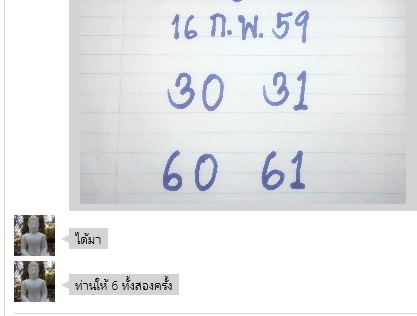 16 ก.พ. 59
30 31
60 61
ได้มา
ท่านให้ 6 ทั้งสองครั้ง